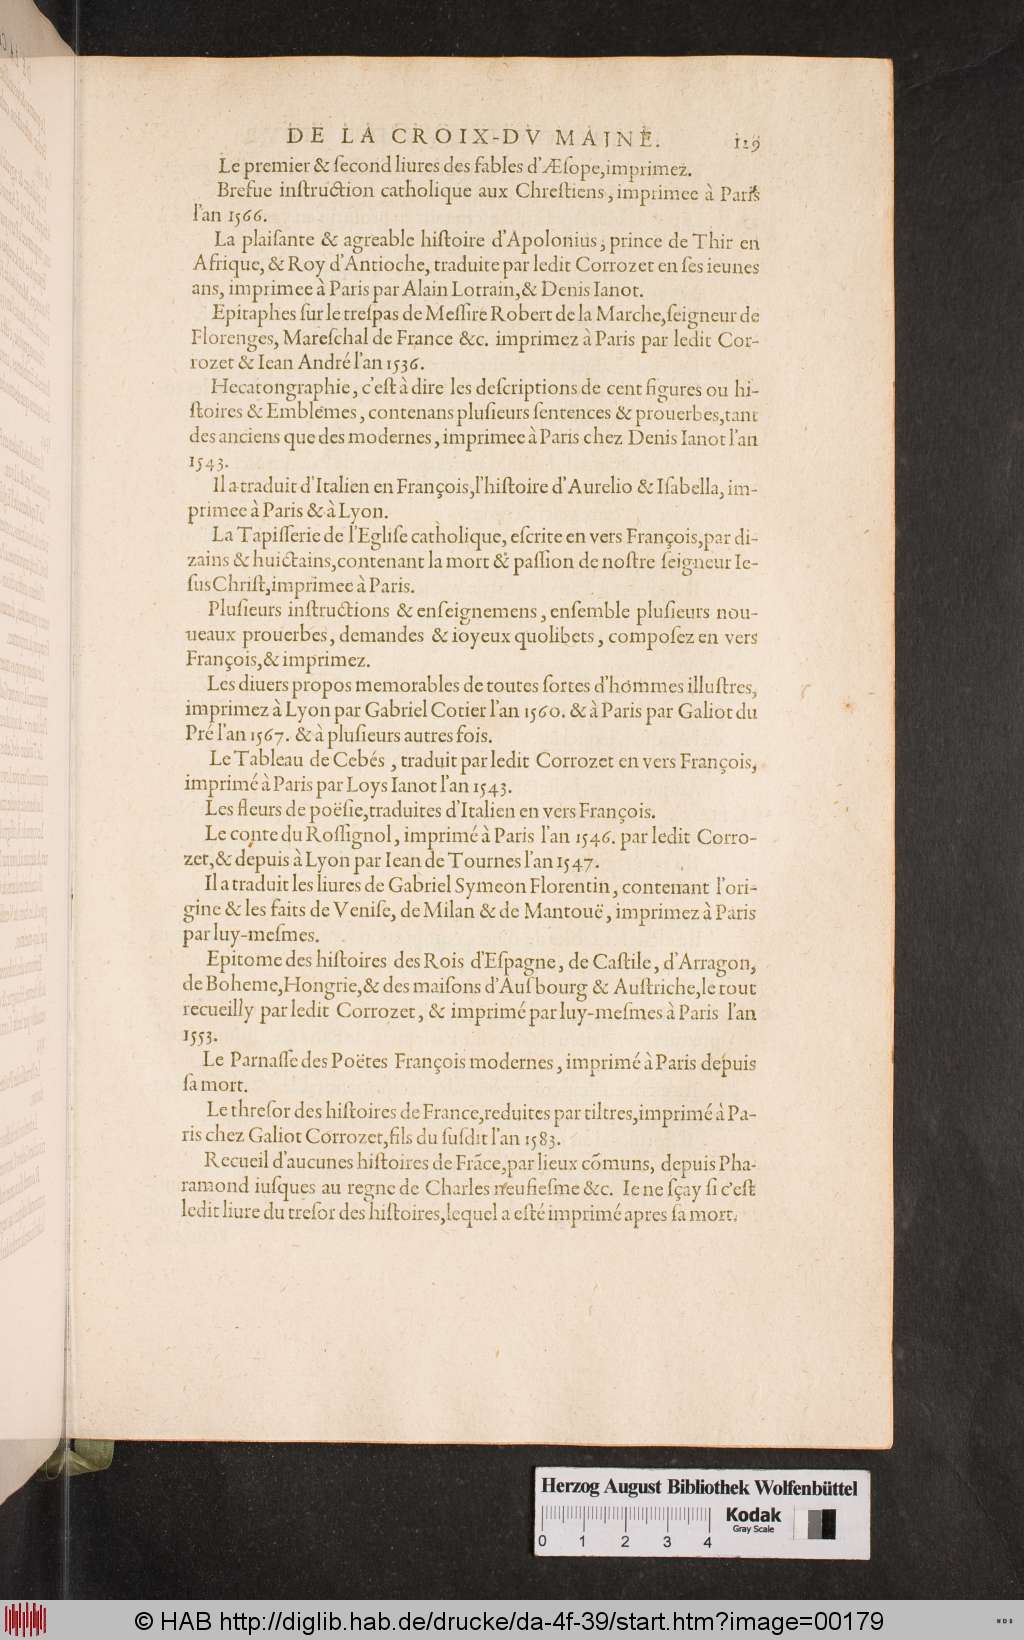 DE LA CROIX-DV MAINE. 129
Le premier & ſecond liures des fables d'Æſope,imprimez.
Brefue inſtruction catholique aux Chreſtiens, imprimee à Paris
l'an 1566.
La plaiſante & agreable hiſtoire d'Apolonius, prince de Thir en
Afrique, & Roy d'Antioche, traduite par ledit Corrozet en ſes ieunes
ans, imprimee à Paris par Alain Lotrain,& Denis Ianot.
Epitaphes ſur le treſpas de Meſſire Robert de la Marche,ſeigneur de
Florenges, Mareſchal de France &c. imprimez à Paris par ledit Cor-
rozet & Iean André l'an 1536.
Hecatongraphie, c'eſt à dire les deſcriptions de cent figures ou hi-
ſtoires & Emblemes, contenans pluſieurs ſentences & prouerbes,tant
des anciens que des modernes, imprimee à Paris chez Denis Ianot l'an
1543.
Il a traduit d'Italien en François,l'hiſtoire d'Aurelio & Iſabella, im-
primee à Paris & à Lyon.
La Tapiſſerie de l'Egliſe catholique, eſcrite en vers François,par di-
zains & huictains,contenant la mort & paſſion de noſtre ſeigneur Ie-
ſus Chriſt,imprimee à Paris.
Pluſieurs inſtructions & enſeignemens, enſemble pluſieurs nou-
ueaux prouerbes, demandes & ioyeux quolibets, compoſez en vers
François,& imprimez.
Les diuers propos memorables de toutes ſortes d'hommes illuſtres,
imprimez à Lyon par Gabriel Cotier l'an 1560. & à Paris par Galiot du
Pré l'an 1567. & à pluſieurs autres fois.
Le Tableau de Cebés, traduit par ledit Corrozet en vers François,
imprimé à Paris par Loys Ianot l'an 1543.
Les fleurs de poëſie,traduites d'Italien en vers François.
Le conte du Roſſignol, imprimé à Paris l'an 1546. par ledit Corro-
zet,& depuis à Lyon par Iean de Tournes l'an 1547.
Il a traduit les liures de Gabriel Symeon Florentin, contenant l'ori-
gine & les faits de Veniſe, de Milan & de Mantouë, imprimez à Paris
par luy-meſmes.
Epitome des hiſtoires des Rois d'Eſpagne, de Caſtile, d'Arragon,
de Boheme,Hongrie,& des maiſons d'Auſbourg & Auſtriche,le tout
recueilly par ledit Corrozet, & imprimé par luy-meſmes à Paris l'an
1553.
Le Parnaſſe des Poëtes François modernes, imprimé à Paris depuis
ſa mort.
Le threſor des hiſtoires de France,reduites par tiltres,imprimé à Pa-
ris chez Galiot Corrozet,fils du ſuſdit l'an 1583.
Recueil d'aucunes hiſtoires de Frãce,par lieux cõmuns, depuis Pha-
ramond iuſques au regne de Charles neufieſme &c. Ie ne ſçay ſi c'eſt
ledit liure du treſor des hiſtoires,lequel a eſté imprimé apres ſa mort.
Herzog August Bibliothek Wolfenbüttel
0 1 2 3 4
Kodak
Gray Scale
© HAB http://diglib.hab.de/drucke/da-4f-39/start.htm?image=00179